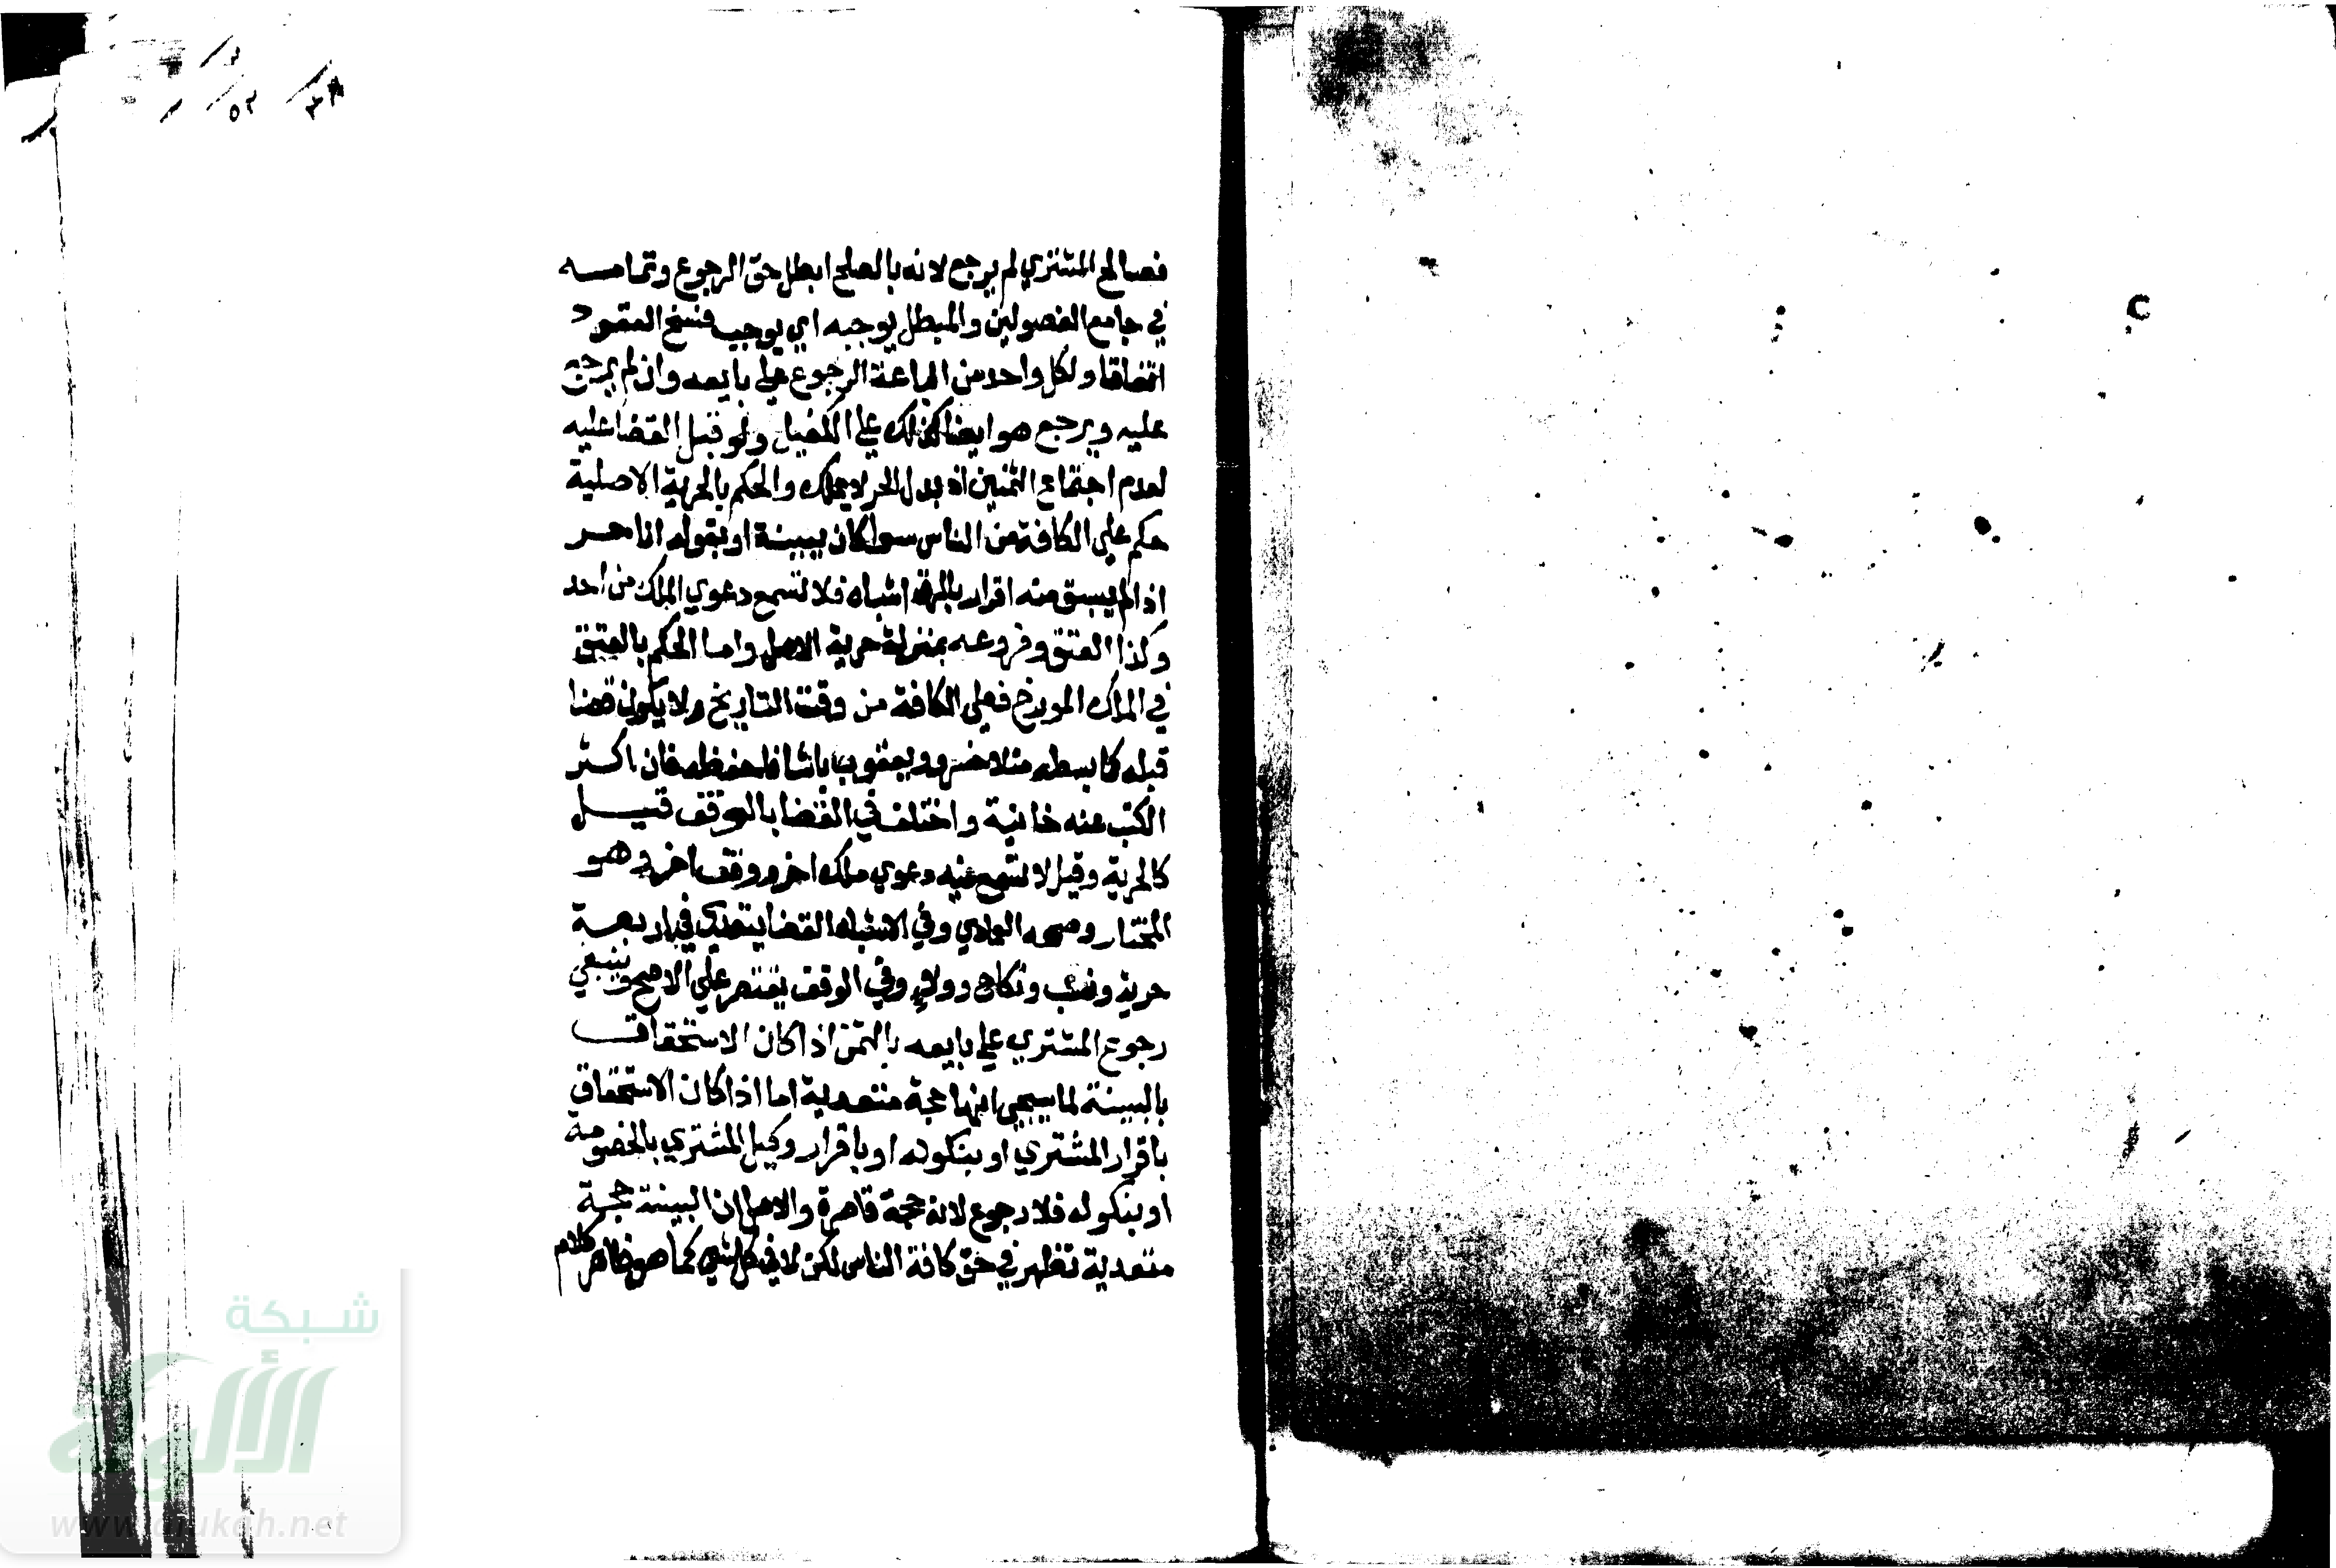 فصالح المشتري لم يرجع لانه بالصلح ابطل حق الرجوع وتمامه
في جامع الفصولين والمبطل يوجبه اي يوجب فسخ العقود
اتفاقا ولكل واحد من الباعة الرجوع علي بايعه وان لم يرجع
عليه ويرجع هو ايضا كذلك علي الكفيل ولو قبل القضا عليه
لعدم اجتماع الثمنين اذ بدل الحر لا يملك والحكم بالحرية الاصلية
حكم علي الكافة من الناس سوا كان ببينة او بقوله انا حر
اذا لم يسبق منه اقرار بالرق اشباه فلا تسمع دعوي الملك من احد
وكذا العتق وفروعه بمنزلة حرية الاصل واما الحكم بالعتق
في الملك المورخ فعلي الكافة من وقت التاريخ ولا يكون قضا
قبله كما بسطه منلا خسرو ويعقوب باشا فاحفظه فان اكثر
الكتب عنه خالية واختلف في القضا بالوقف قيل
كالحرية وقيل لا فتسمع فيه دعوي ملك اخر ووقف اخر وهو
المختار وصححه العمادي وفي الاشباه القضا يتعدي في اربعة
حرية ونسب ونكاح وولاء وفي الوقف يقتصر علي الاصح وينبغي
رجوع المشتري علي بايعه بالثمن اذا كان الاستحقاق
بالبينة لما سيجي انها حجة متعدية اما اذا كان الاستحقاق
باقرار المشتري او بنكوله او باقرار وكيل المشتري بالخصومة
او بنكوله فلا رجوع لانه حجة قاصرة والاصل ان البينة حجة
متعدية تظهر في حق كافة الناس لكن لا في كل شي كما هو ظاهر كلام
شبكة
الألوكة
www.alukah.net